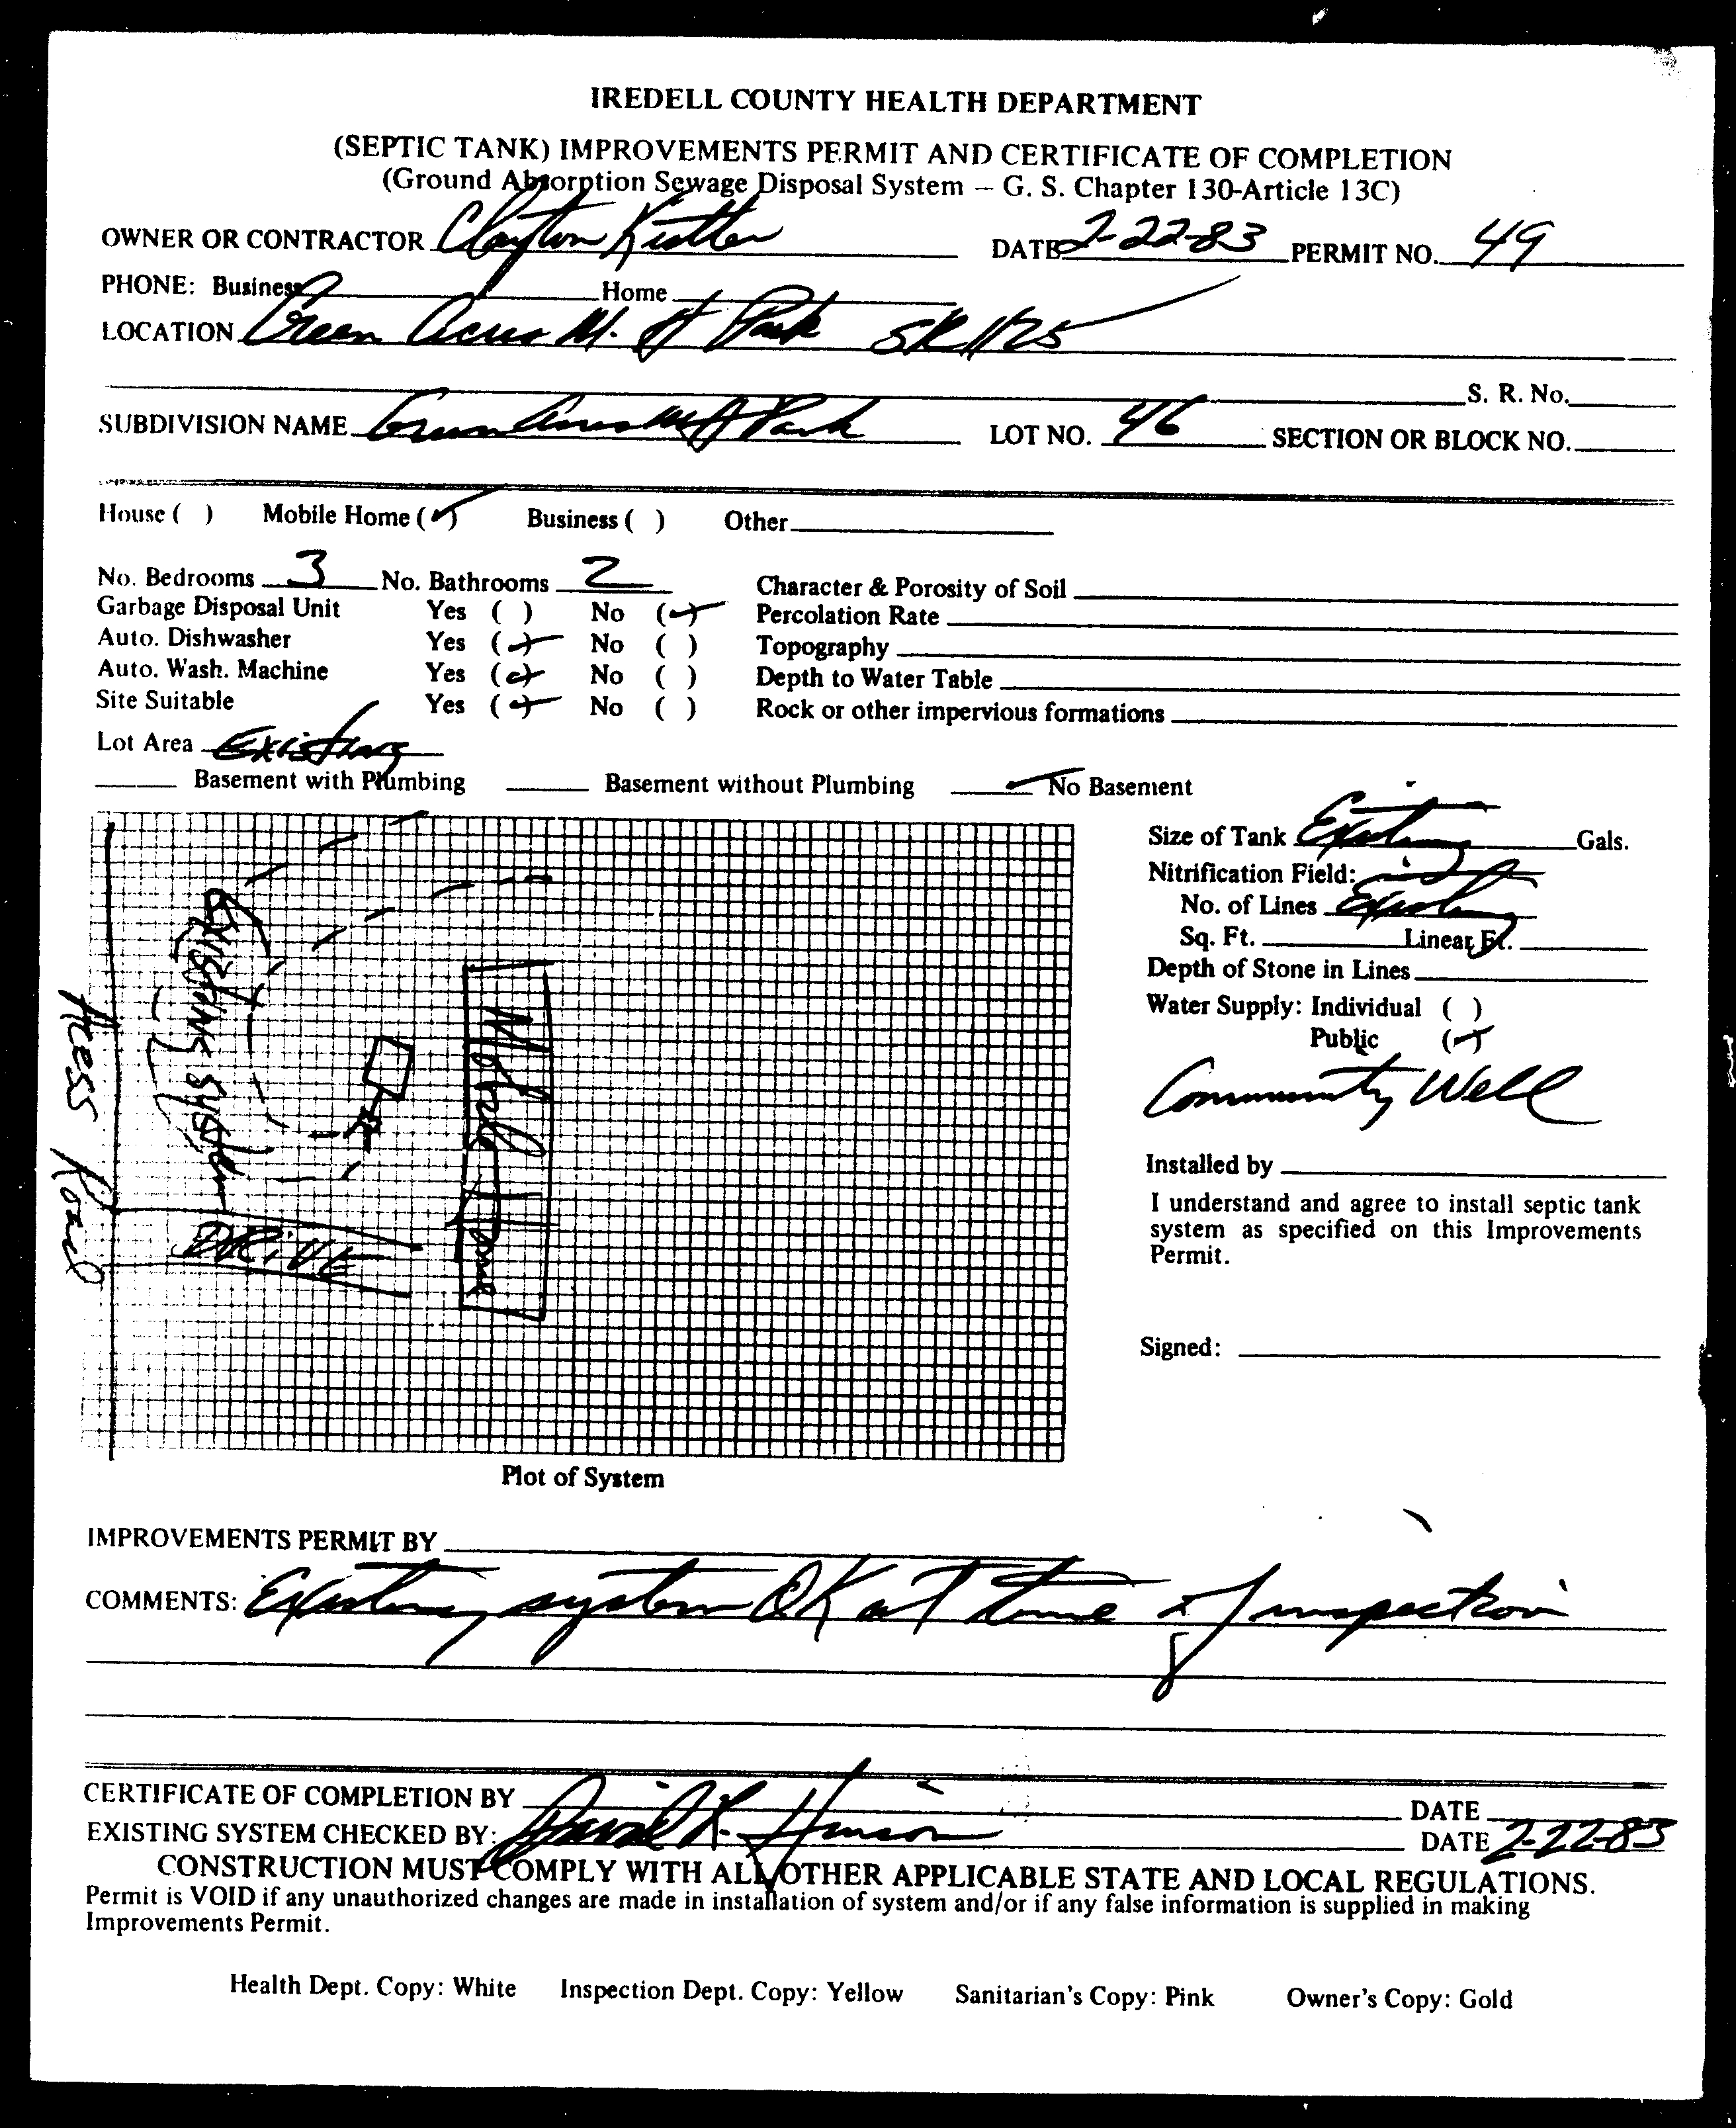 IREDELL COUNTY HEALTH DEPARTMENT
(SEPTIC TANK) IMPROVEMENTS PERMIT AND CERTIFICATE OF COMPLETION
(Ground Absorption Sewage Disposal System — G. S. Chapter 130-Article 13C)
OWNER OR CONTRACTOR Clayton DATE 2-22-83 PERMIT NO. 49
PHONE: Business Home
LOCATION Green Acres M. H Park SR 1125
S. R. No.
SUBDIVISION NAME Green Acres M H Park LOT NO. 46 SECTION OR BLOCK NO.
House ( ) Mobile Home (✓) Business ( ) Other
No. Bedrooms 3 No. Bathrooms 2 Character & Porosity of Soil
Garbage Disposal Unit Yes ( ) No (✓) Percolation Rate
Auto. Dishwasher Yes (✓) No ( ) Topography
Auto. Wash. Machine Yes (✓) No ( ) Depth to Water Table
Site Suitable Yes (✓) No ( ) Rock or other impervious formations
Lot Area Existing
Basement with Plumbing Basement without Plumbing ✓ No Basement
Size of Tank Existing Gals.
Nitrification Field:
No. of Lines Existing
Sq. Ft. Linear Ft.
Depth of Stone in Lines
Water Supply: Individual ( )
Public (✓)
Community Well
Installed by
I understand and agree to install septic tank
system as specified on this Improvements
Permit.
Signed:
Access Road
EXISTING SYSTEM
DRIVE
Mobile Home
Plot of System
IMPROVEMENTS PERMIT BY
COMMENTS: Existing system OK at time of inspection
CERTIFICATE OF COMPLETION BY DATE
EXISTING SYSTEM CHECKED BY: David L. Hinson DATE 2-22-83
CONSTRUCTION MUST COMPLY WITH ALL OTHER APPLICABLE STATE AND LOCAL REGULATIONS.
Permit is VOID if any unauthorized changes are made in installation of system and/or if any false information is supplied in making
Improvements Permit.
Health Dept. Copy: White Inspection Dept. Copy: Yellow Sanitarian's Copy: Pink Owner's Copy: Gold